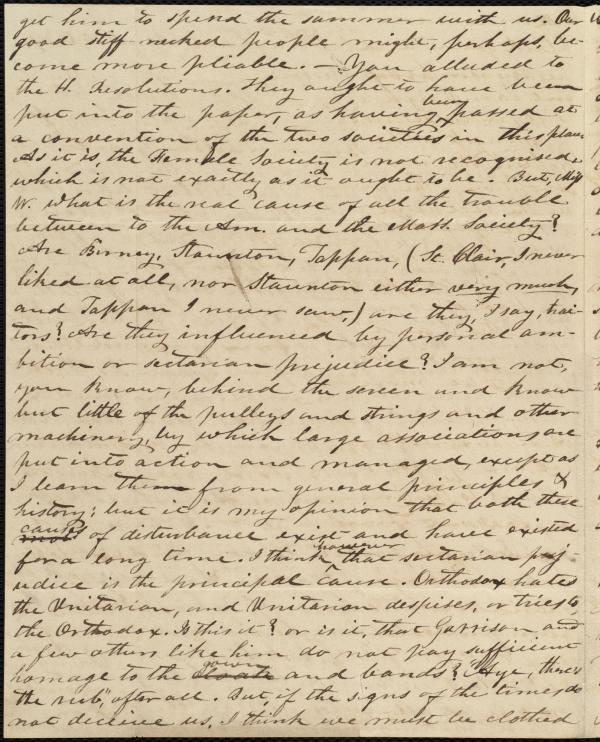 get him to spend the summer with us. Our
good stiff necked people might, perhaps, be-
come more pliable. — You alluded to
the H. Resolutions. They ought to have been
put into the paper, as having been passed at
a convention of the two societies in this place.
As it is, the Female Society is not recognised,
which is not exactly as it ought to be. But, Miss
W. what is the real cause of all the trouble
between to the Am. and the Mass. Society?
Are Birney, Staunton, Tappan, (St. Clair, I never
liked at all, nor Staunton either very much,
and Tappan I never saw,) are they, I say, trai-
tors? Are they influenced by personal am-
bition or sectarian prejudice? I am not,
you know, behind the screen and know
but little of the pulleys and strings and other
machinery, by which large associations are
put into action and managed, except as
I learn them from general principles &
history; but it is my opinion that both these
causes of disturbance exist and have existed
for a long time. I think however that sectarian prej-
udice is the principal cause. Orthodox hates
the Unitarian, and Unitarian despises, or tries to,
the Orthodox. Is this it? or is it, that Garrison and
a few others like him do not pay sufficient
homage to the gown and bands? "Aye, there's
the rub," after all. But, if the signs of the times do
not deceive us, I think we must be clothed